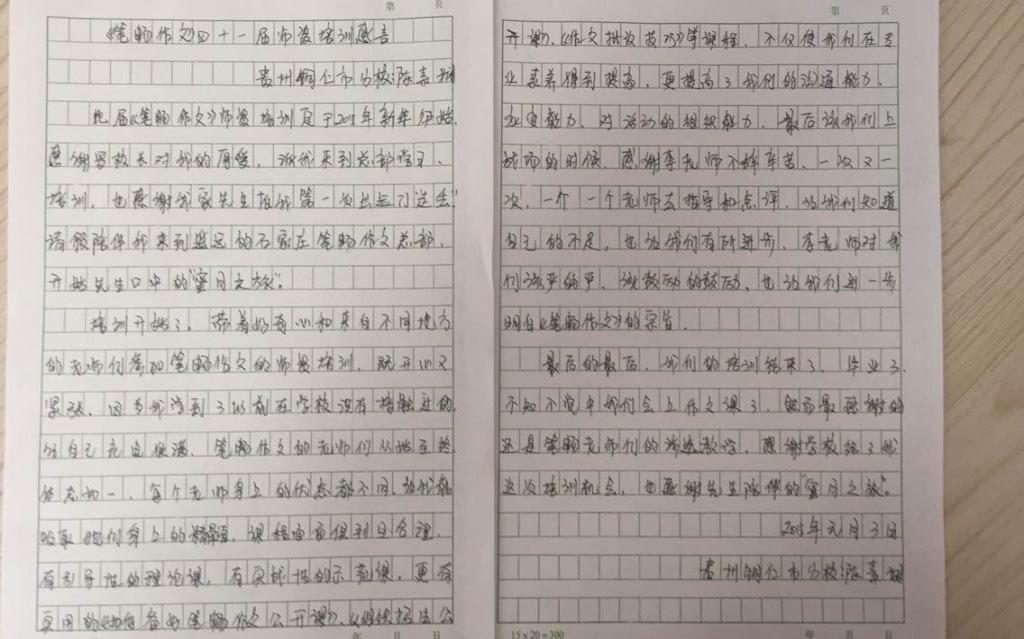 第 页
《笔畅作文》四十一届师资培训感言
贵州铜仁市分校:陈
此届《笔畅作文》师资培训是于2015年新年伊始,
感谢罗校长对我的厚爱,让我来到总部学习、
培训,也感谢我家先生在我第一次出远门送会
请假陪伴我来到遥远的石家庄笔畅作文总部,
开始先生口中的“蜜月之旅”。
培训开始了,带着好奇心和来自不同地方
的老师们参加笔畅作文的师资培训,既开心又
紧张,因为我学到了以前在学校没有接触过的,
让自己充电很满。笔畅作文的老师们从始至终
状态如一,每个老师身上的状态都不同,让我都
吸取她们身上的精华,课程由
有引导性的理论课,有实战性的示范课,更有
实用的《如何备好笔畅作文公开课》、《组织招生公
年 月 日
第 页
开课》、《作文批改技巧》等课程,不仅使我们在专
业素养得到提高,更提高了我们的沟通能力,
应变能力,对活动的组织能力。最后让我们上
战场的时候,感谢李老师不辞辛苦,一次又一
次,一个一个老师去指导和点评,让我们知道
自己的不足,也让我们有所进步,李老师对我
们该严的严,该鼓励的鼓励,也让我们进一步
明白《笔畅作文》的宗旨。
最后的最后,我们的培训结束了,毕业了,
不知不觉中我们会上作文课了,然而最感谢的
还是笔畅老师们的教学,感谢学校给了我
这次培训机会,也感谢先生陪伴的“蜜月之旅”。
2015年元月3日
贵州铜仁市分校:陈
15×20=300
年 月 日